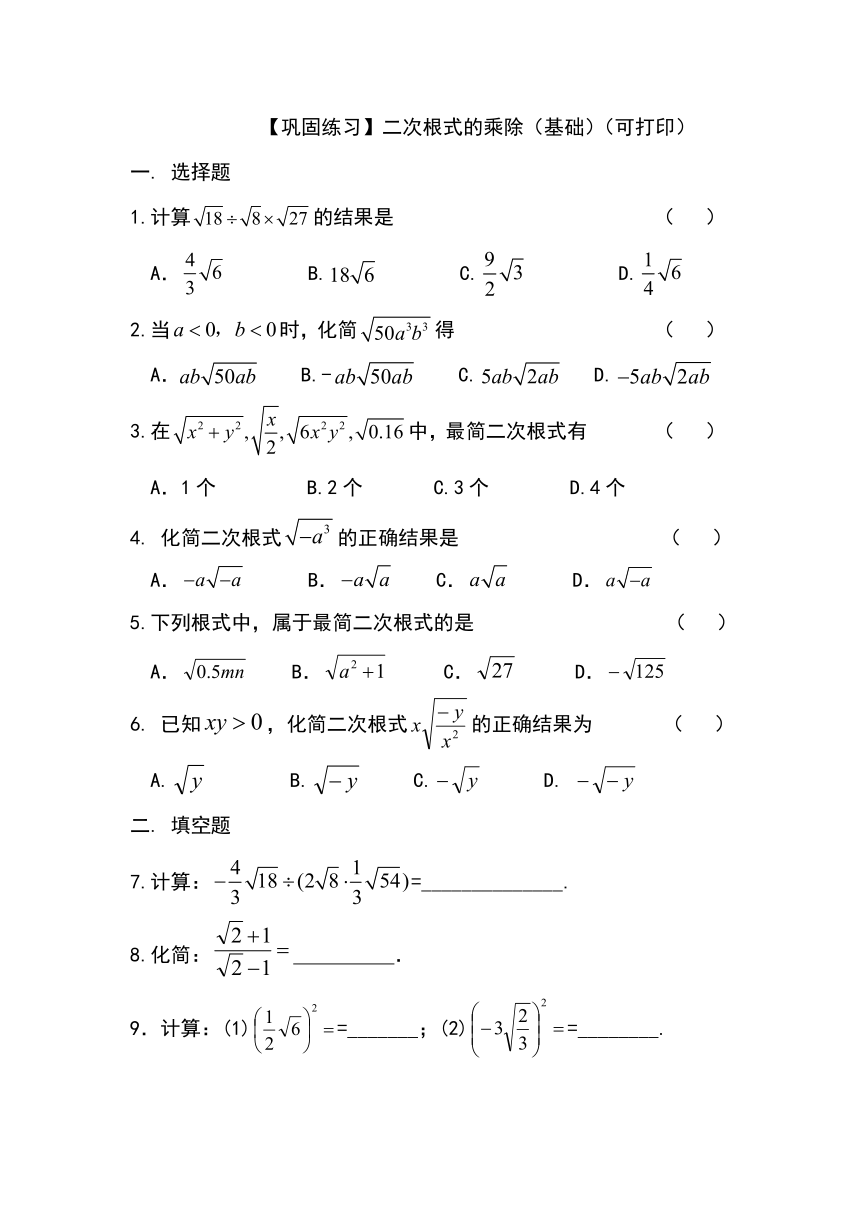 【巩固练习】二次根式的乘除（基础）（可打印）
一. 选择题
1.计算√18÷√8×√27的结果是 （ ）
A. 4/3√6 B. 18√6 C. 9/2√3 D. 1/4√6
2.当a＜0，b＜0时,化简√(50a³b³)得 （ ）
A. ab√(50ab) B.-ab√(50ab) C. 5ab√(2ab) D. -5ab√(2ab)
3.在√(x²+y²),√(x/2),√(6x²y²),√0.16中,最简二次根式有 （ ）
A.1个 B.2个 C.3个 D.4个
4. 化简二次根式√(-a³)的正确结果是 （ ）
A. -a√(-a) B. -a√a C. a√a D. a√(-a)
5.下列根式中，属于最简二次根式的是 （ ）
A. √(0.5mn) B. √(a²+1) C. √27 D. -√125
6. 已知xy＞0，化简二次根式x√(-y/x²)的正确结果为 （ ）
A. √y B. √(-y) C. -√y D. -√(-y)
二. 填空题
7.计算：-4/3√18÷(2√8·1/3√54)=______________.
8.化简：(√2+1)/(√2-1)=__________.
9.计算:(1)(1/2√6)²==_______；(2)(-3√(2/3))²==________.